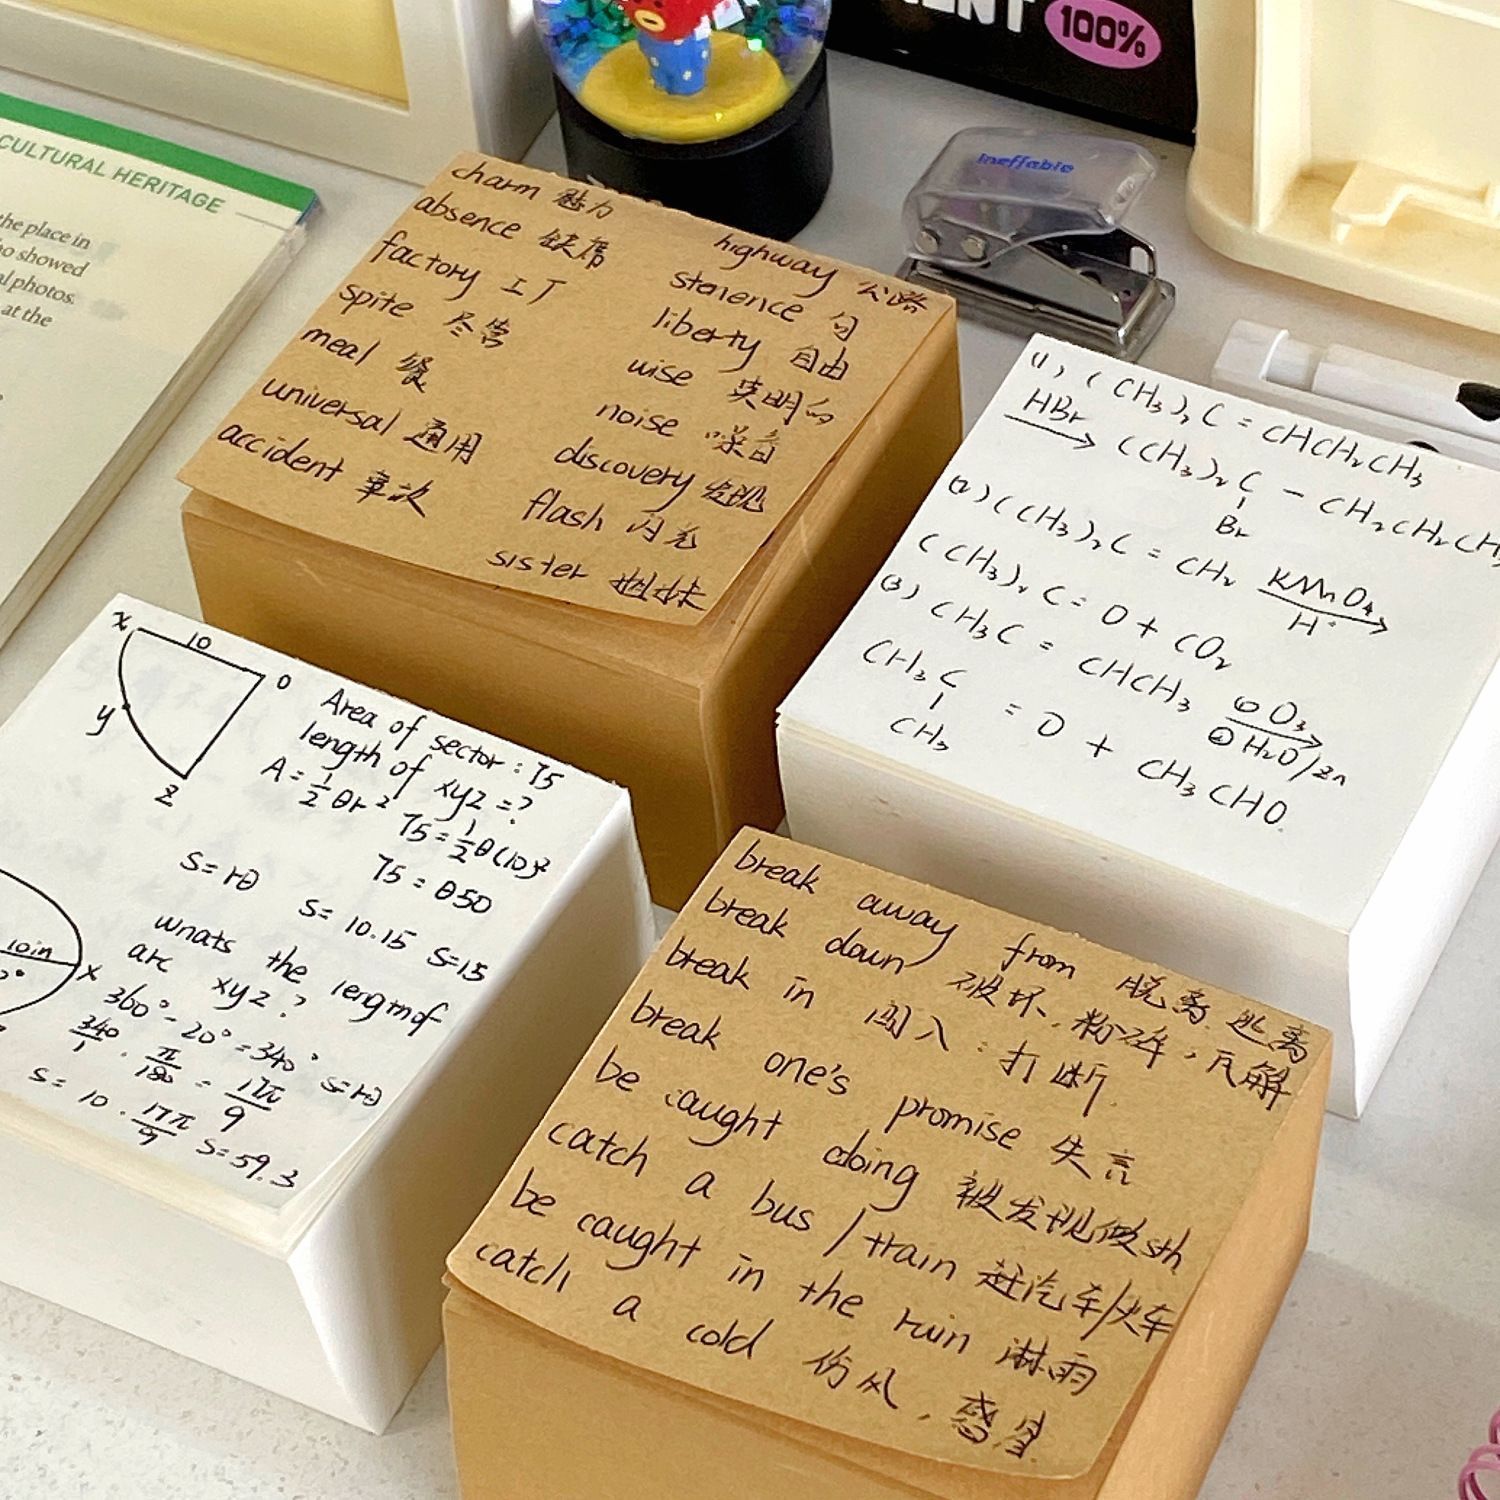 ENT
100%
CULTURAL HERITAGE
the place in
o showed
al photos.
at the
ineffable
charm 魅力
absence 缺席
factory 工厂
spite 尽害
meal 餐
universal 通用
accident 事故
highway 公路
stenence 句
liberty 自由
wise 英明的
noise 噪音
discovery 发现
flash 闪光
sister 姐妹
(1) (CH₃)₂C = CHCH₂CH₃
HBr
→ (CH₃)₂C - CH₂CH₂CH
Br
(2) (CH₃)₂C = CH₂ KMnO₄
H⁺
(CH₃)₂C = O + CO₂
(3) CH₃C = CHCH₃ ① O₃
② H₂O/Zn
CH₃C = O + CH₃CHO
CH₃
x
10
o
y
z
Area of sector: 75
length of xyz = ?
A = ½ θr²
75 = ½ θ(10)²
75 = θ50
s = rθ
s = 10.15 s=15
10in
x
whats the length of
arc xyz?
360° - 20° = 340° s=rθ
340/1 · π/180 = 17π/9
s = 10 · 17π/9 s=59.3
break away from 脱离 逃离
break down 破坏, 粉碎, 瓦解
break in 闯入; 打断
break one's promise 失言
be caught doing 被发现做sth
catch a bus / train 赶汽车/火车
be caught in the rain 淋雨
catch a cold 伤风,